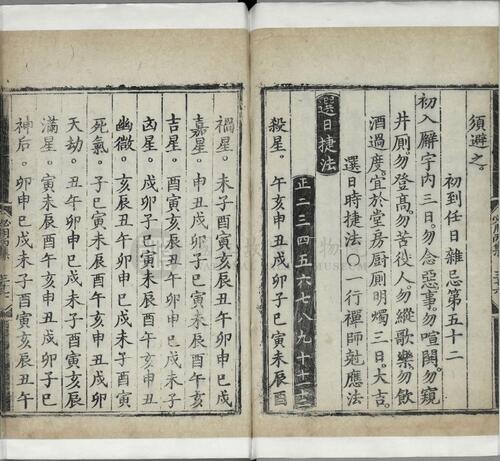 須避之。
初到任日雜忌第五十二
初入廨宇内三日。勿念惡事。勿喧鬧。勿窺
井厠勿登高。勿苦役人。勿縱歌樂。勿飲
酒過度。宜於堂房厨厠明燭三日。大吉。
選日時捷法〇一行禪師尅應法
選日捷法
正二三四五六七八九十十一十二
殺星。午亥申丑戌卯子巳寅未辰酉
禍星。未子酉寅亥辰丑午卯申巳戌
嘉星。申丑戌卯子巳寅未辰酉午亥
吉星。酉寅亥辰丑午卯申巳戌未子
凶星。戌卯子巳寅未辰酉午亥申丑
幽微。亥辰丑午卯申巳戌未子酉寅
死氣。子巳寅未辰酉午亥申丑戌卯
天劫。丑午卯申巳戌未子酉寅亥辰
滿星。寅未辰酉午亥申丑戌卯子巳
神后。卯申巳戌未子酉寅亥辰丑午